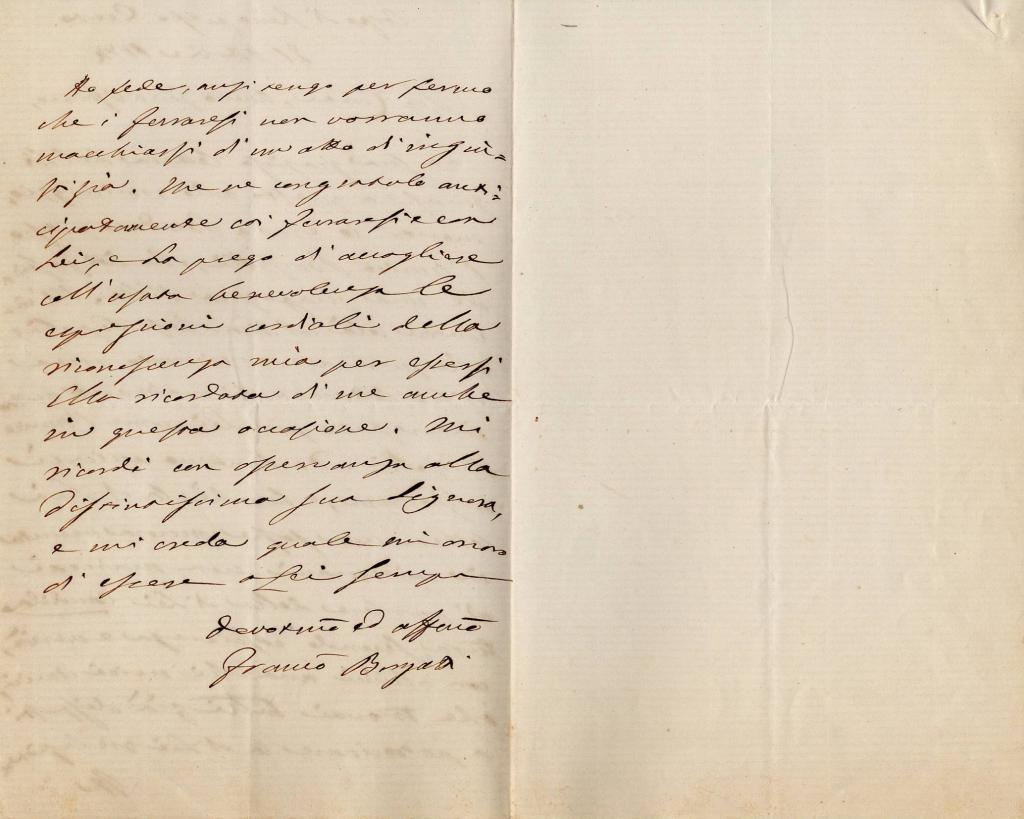 Ho fede, anzi tengo per fermo
che i ferraresi non vorranno
macchiarsi di un atto di ingiu=
stizia. Me ne congratulo anti=
cipatamente coi ferraresi e con
Lei, e La prego di accogliere
coll'usata benevolenza le
espressioni cordiali della
riconoscenza mia per essersi
Ella ricordata di me anche
in questa occasione. Mi
ricordi con osservanza alla
distintissima sua Signora,
e mi creda quale mi onoro
di essere a Lei sempre
devotmo ed affmo
Franco